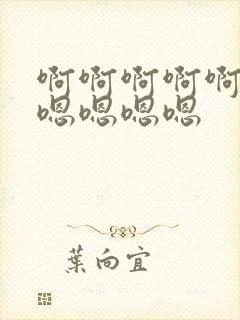 啊啊啊啊啊
嗯嗯嗯嗯
葉向宜